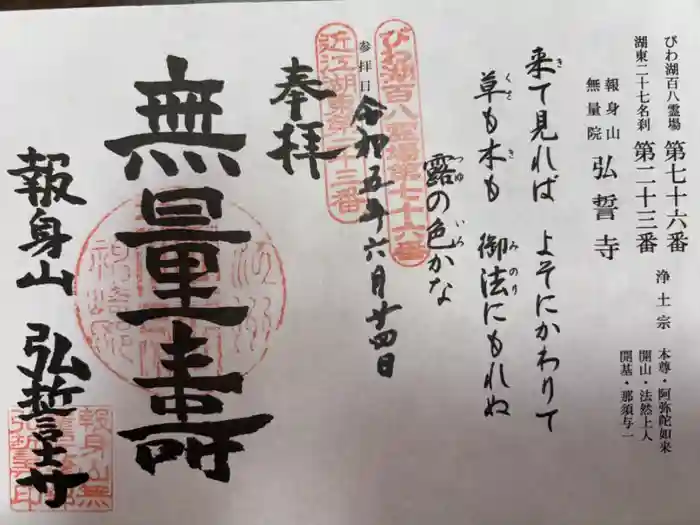 びわ湖百八霊場 第七十六番
湖東二十七名刹 第二十三番
浄土宗
本尊・阿弥陀如来
開山・法然上人
開基・那須与一
報身山
無量院
弘誓寺
来て見れば よそにかわりて
草も木も 御法にもれぬ
露の色かな
びわ湖百八霊場第七十六番
参拝日
令和五年六月廿四日
近江湖東第二十三番
奉拝
無量壽
報身山 弘誓寺